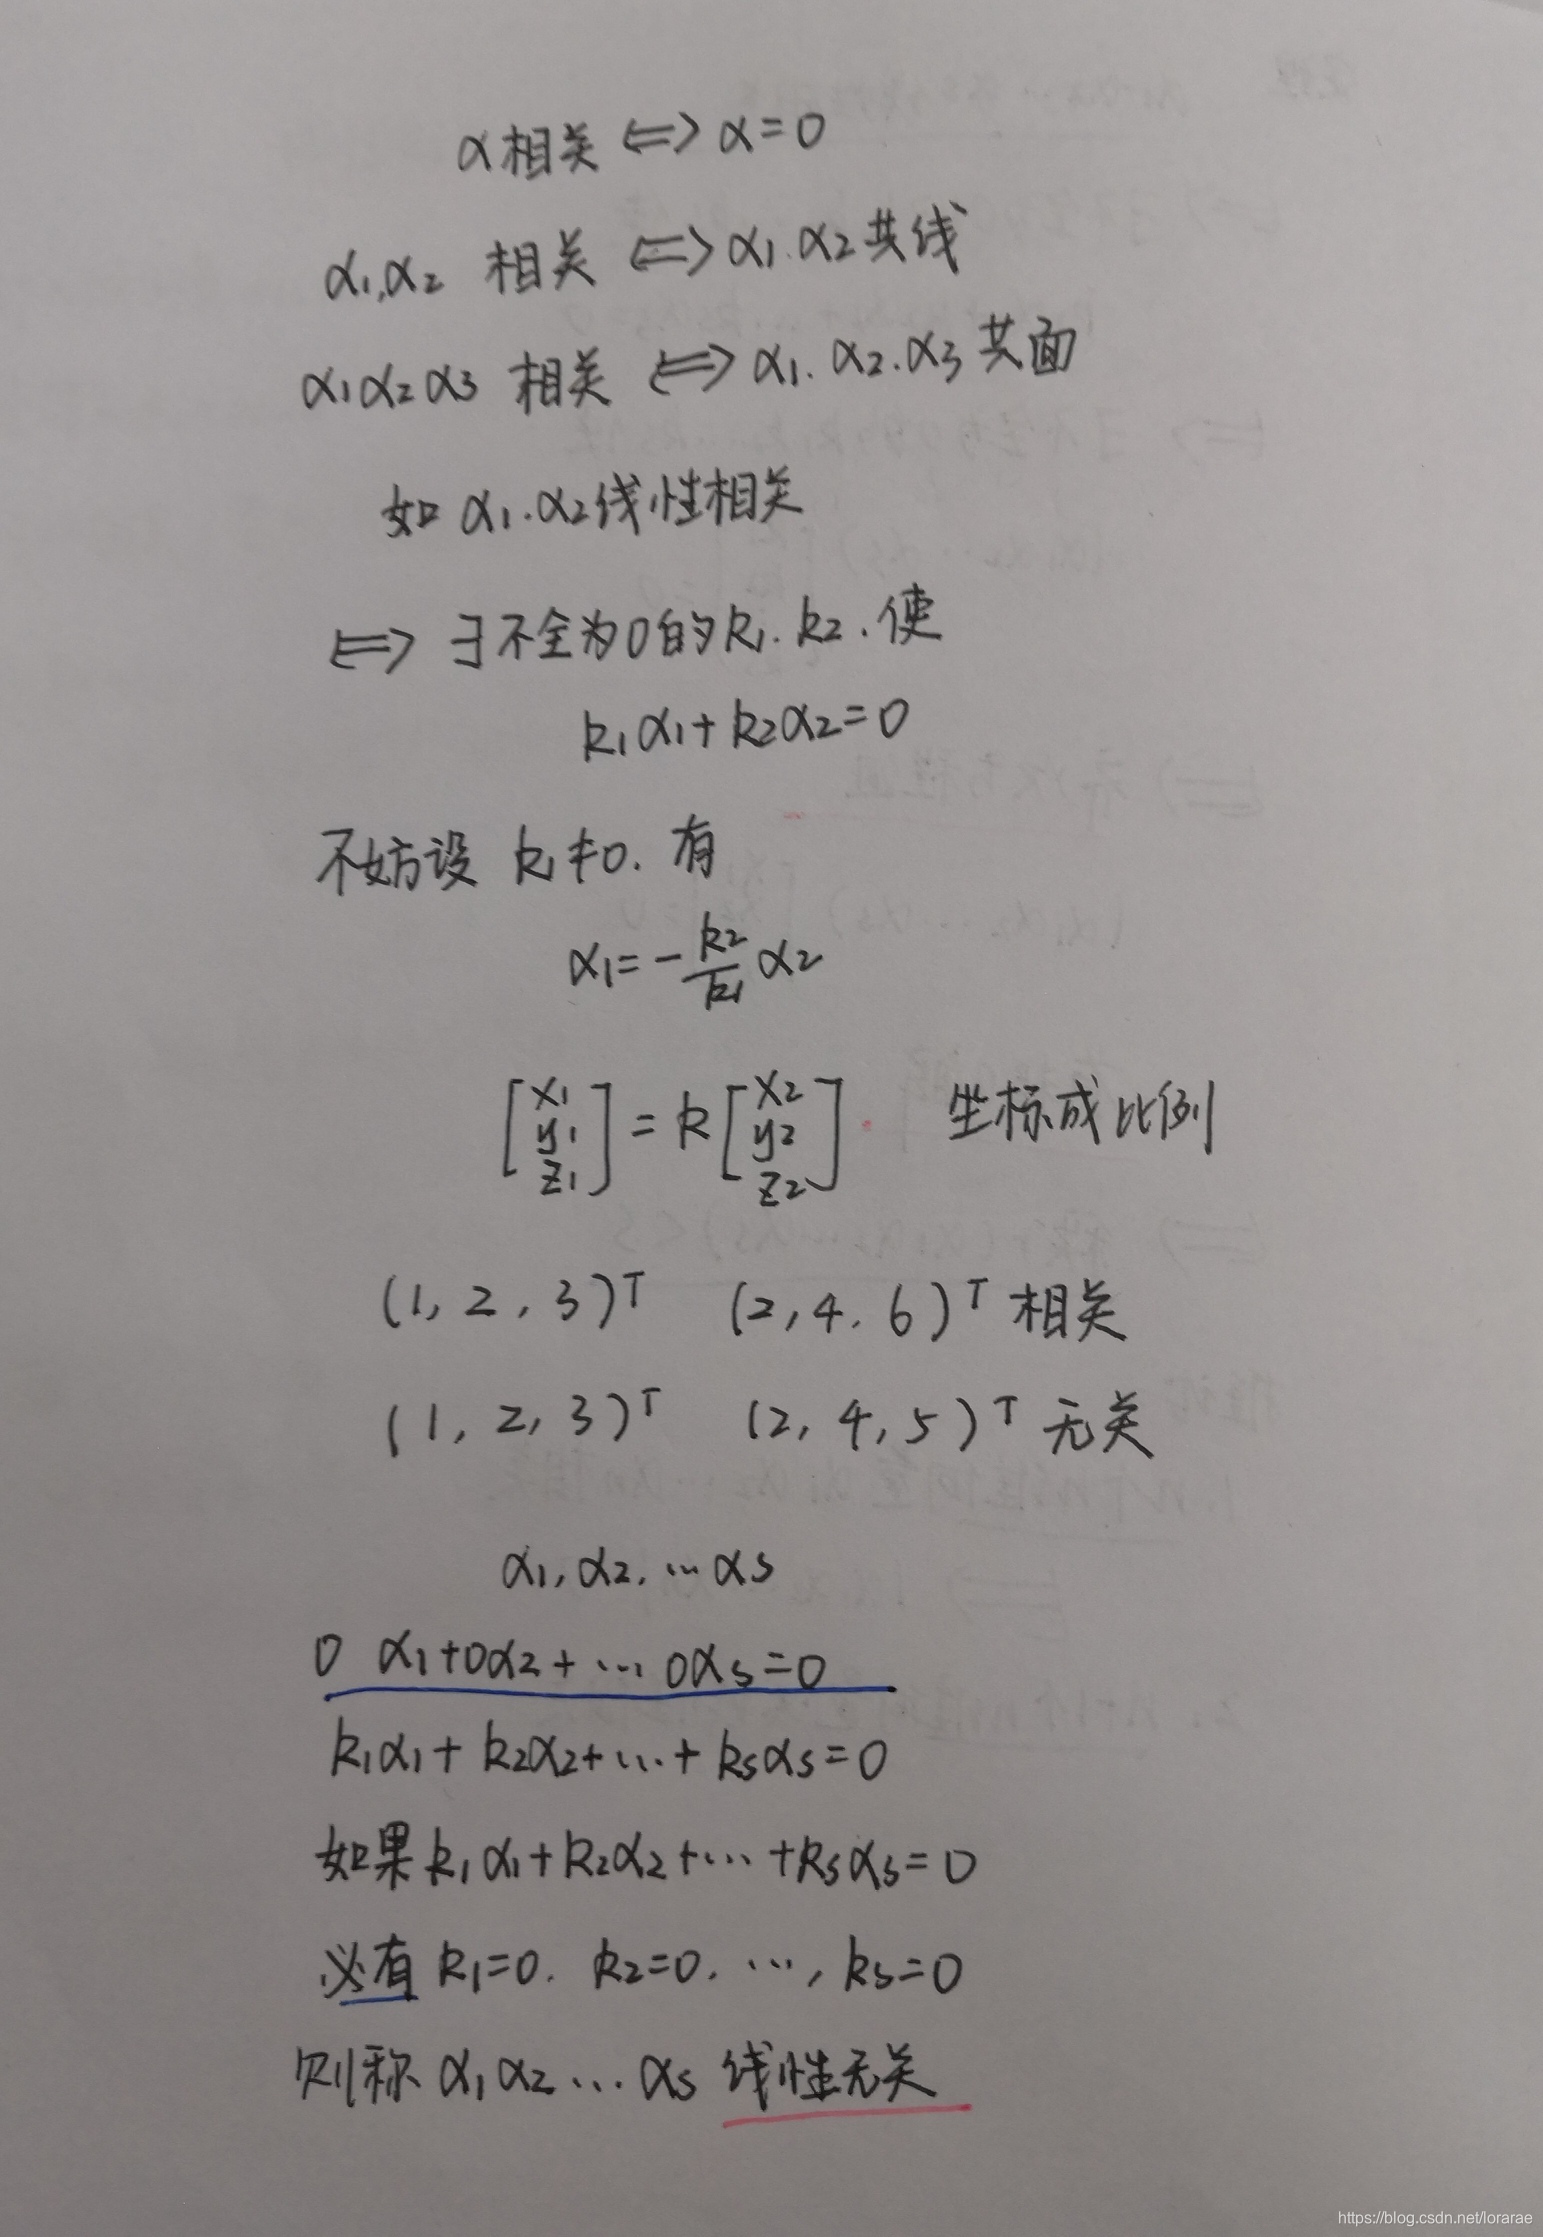 α相关 ⟺ α=0
α1,α2 相关 ⟺ α1.α2共线
α1α2α3 相关 ⟺ α1.α2.α3共面
如 α1.α2线性相关
⟺ ∃不全为0的k1.k2.使
k1α1+k2α2=0
不妨设 k1≠0. 有
α1=-k2/k1 α2
[x1 y1 z1] = k [x2 y2 z2] 坐标成比例
(1,2,3)ᵀ (2,4.6)ᵀ 相关
(1,2,3)ᵀ (2,4,5)ᵀ 无关
α1,α2,…αs
0 α1+0α2+…0αs=0
k1α1+k2α2+…+ksαs=0
如果k1α1+k2α2+…+ksαs=0
必有 k1=0. k2=0. …, ks=0
则称 α1α2…αs 线性无关
https://blog.csdn.net/lorarae